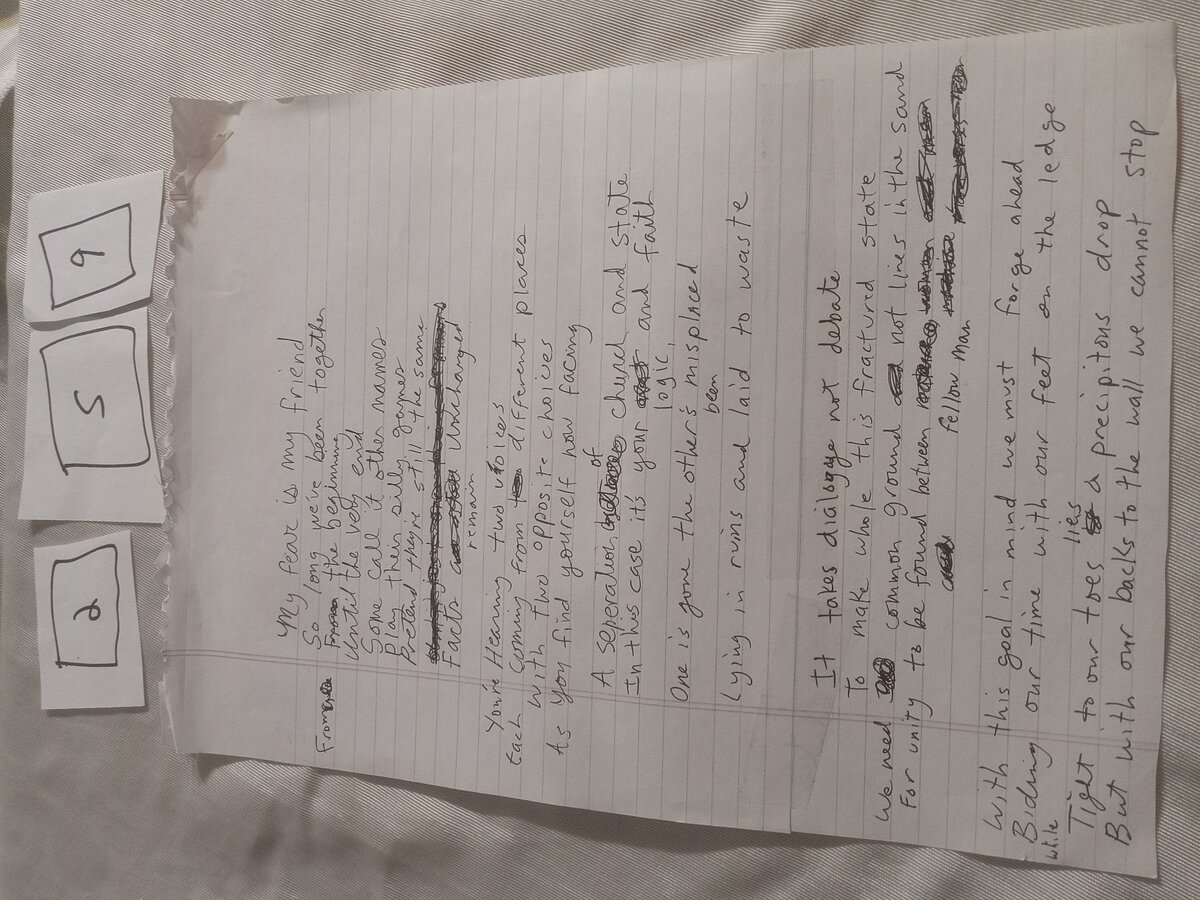 2
5
9
My fear is my friend
So long we've been together
From the beginning
Until the very end
Some call it other names
Play their silly games
Pretend they're still the same
Facts remain unchanged
You're Hearing two voices
Each coming from different places
With two opposite choices
As you find yourself now facing
A seperation of church and state
In this case it's your logic, and faith
One is gone the other's been misplaced
Lying in ruins and laid to waste
It takes dialogue not debate
To make whole this fractured state
We need common ground not lines in the sand
For unity to be found between fellow man
With this goal in mind we must forge ahead
Biding our time with our feet on the ledge
while
Tight to our toes lies a precipitous drop
But with our backs to the wall we cannot stop